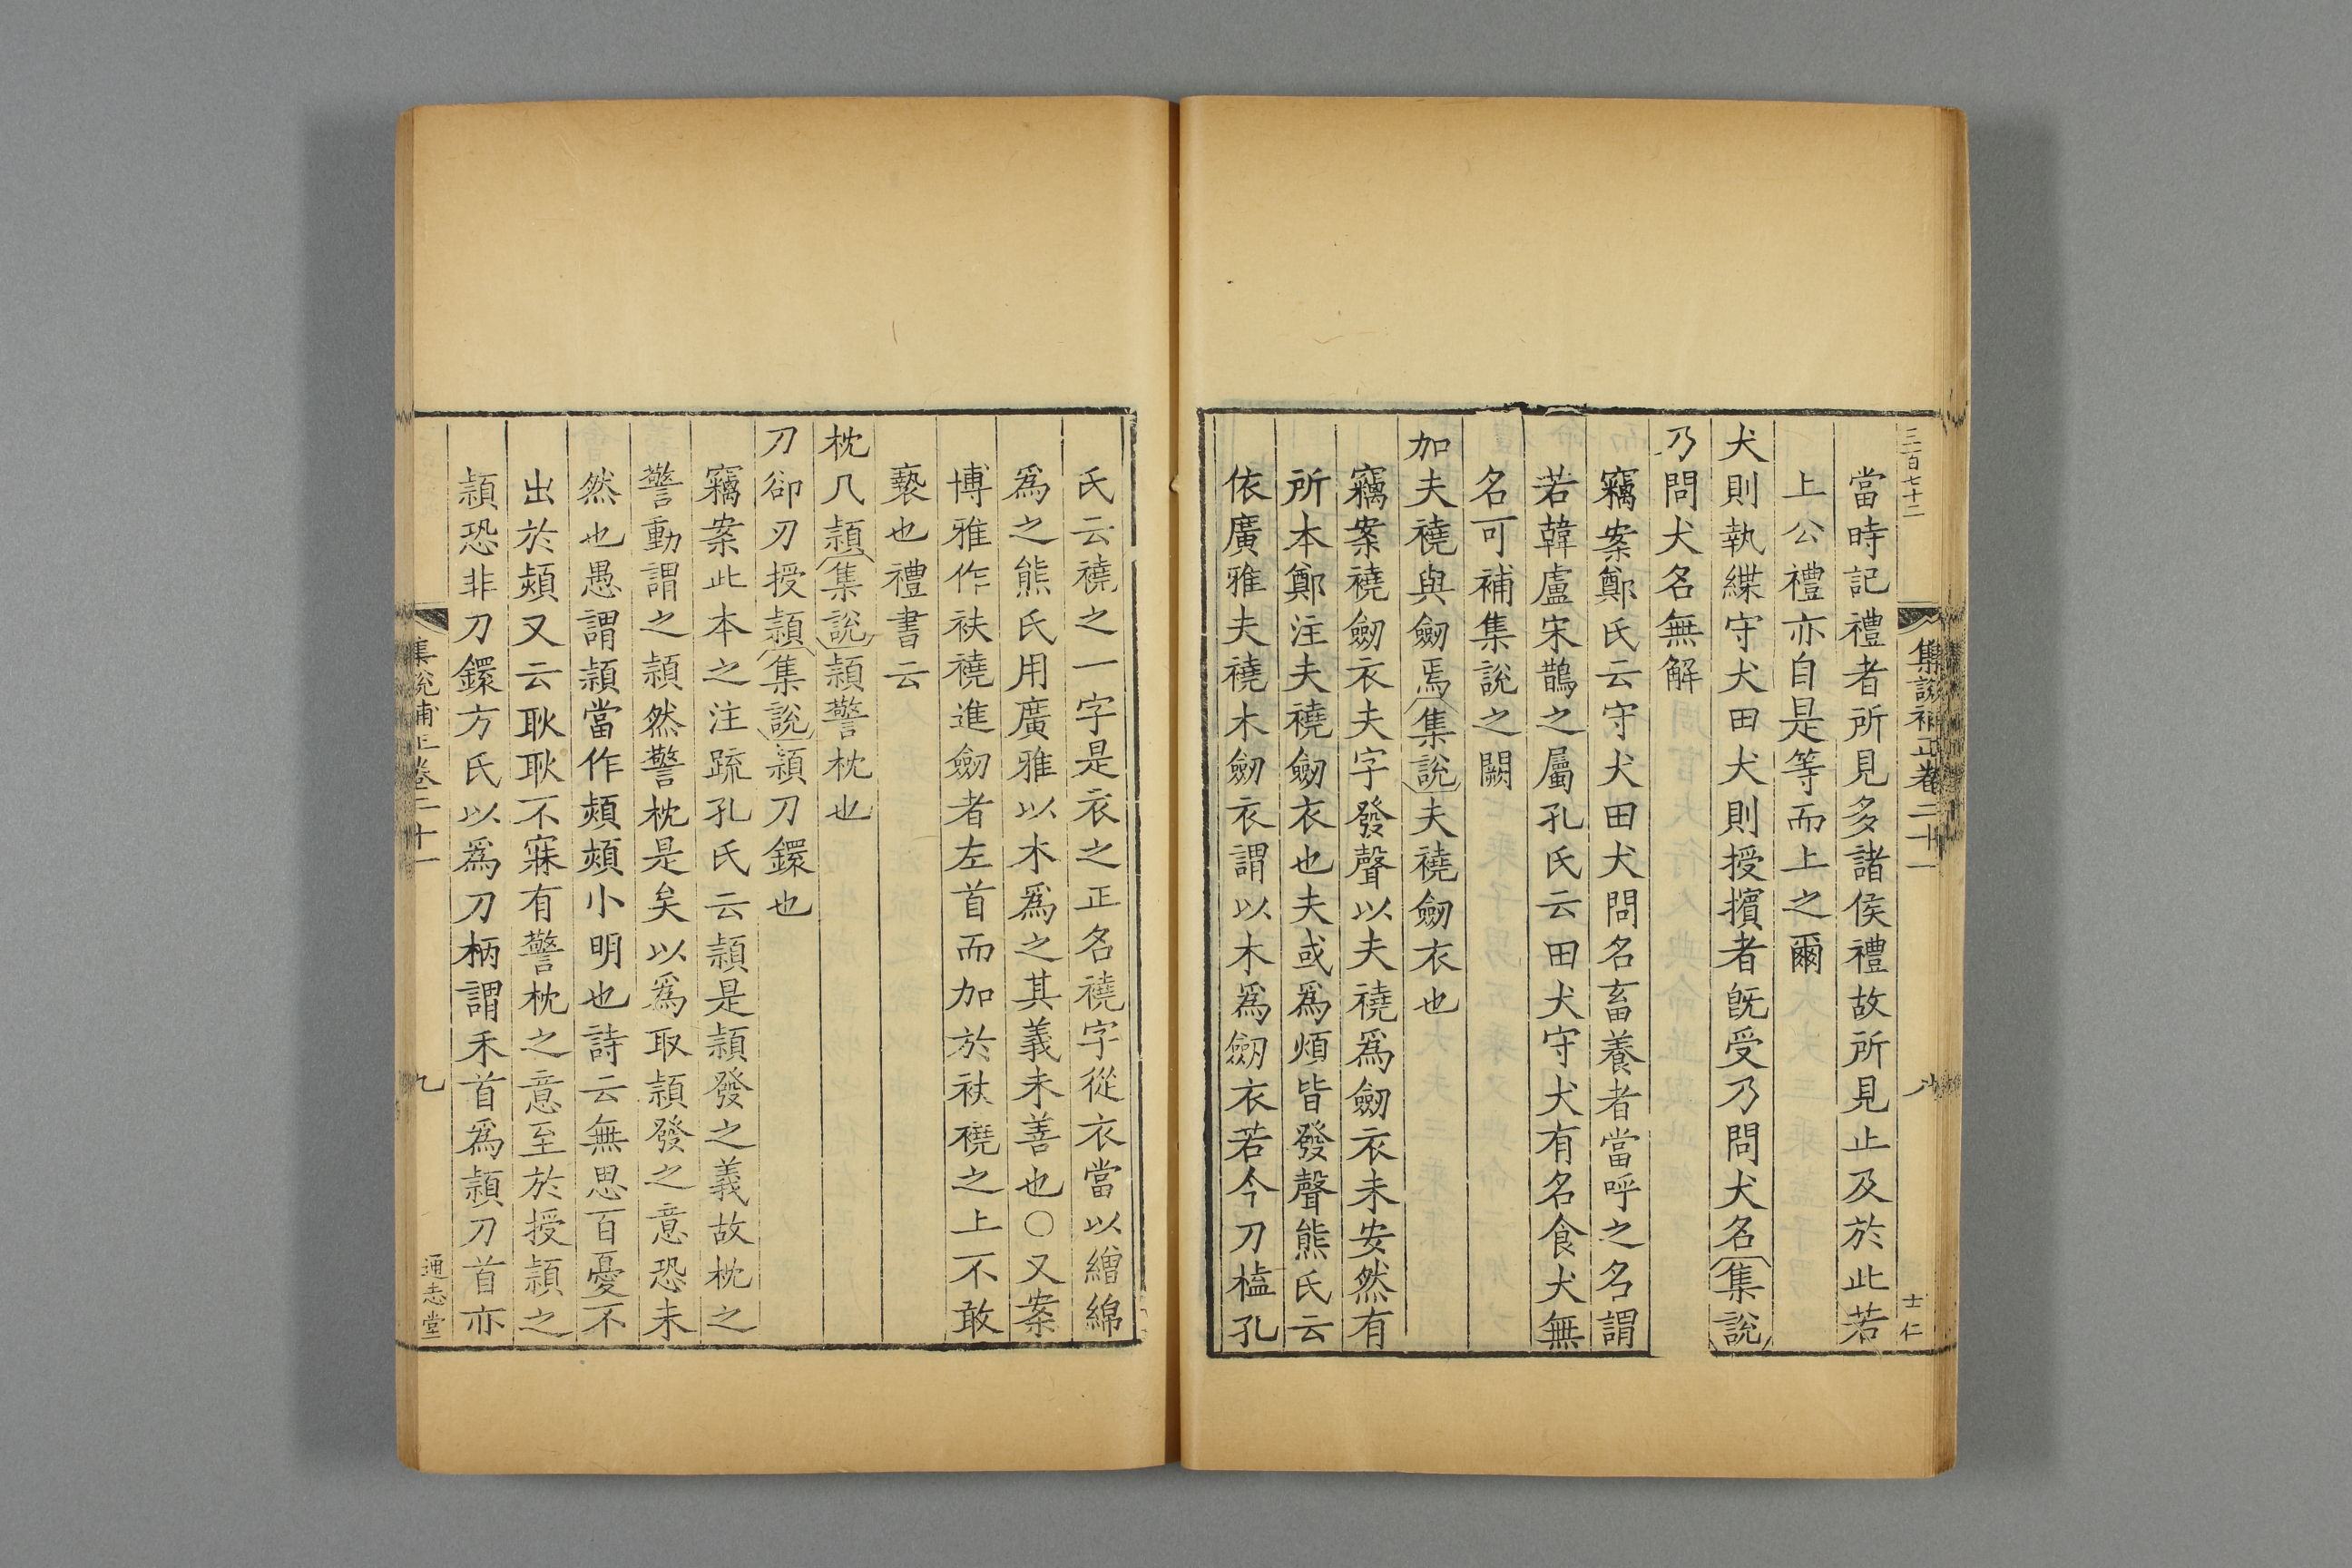 三百七十二
集説補正卷二十一
八
士仁
當時記禮者所見多諸侯禮故所見止及於此若
上公禮亦自是等而上之爾
犬則執緤守犬田犬則授擯者旣受乃問犬名集說
乃問犬名無解
竊案鄭氏云守犬田犬問名畜養者當呼之名謂
若韓盧宋鵲之屬孔氏云田犬守犬有名食犬無
名可補集說之闕
加夫襓與劒焉集說夫襓劒衣也
竊案襓劒衣夫字發聲以夫襓爲劒衣未安然有
所本鄭注夫襓劒衣也夫或爲煩皆發聲熊氏云
依廣雅夫襓木劒衣謂以木爲劒衣若今刀榼孔
氏云襓之一字是衣之正名襓字從衣當以繒綿
爲之熊氏用廣雅以木爲之其義未善也○又案
博雅作袂襓進劒者左首而加於袂襓之上不敢
褻也禮書云
枕几熲集說熲警枕也
刀卻刃授穎集說穎刀鐶也
竊案此本之注疏孔氏云熲是穎發之義故枕之
警動謂之穎然警枕是矣以爲取穎發之意恐未
然也愚謂熲當作熲熲小明也詩云無思百憂不
出於熲又云耿耿不寐有警枕之意至於授穎之
穎恐非刀鐶方氏以爲刀柄謂禾首爲穎刀首亦
集説補正卷二十一
九
通志堂